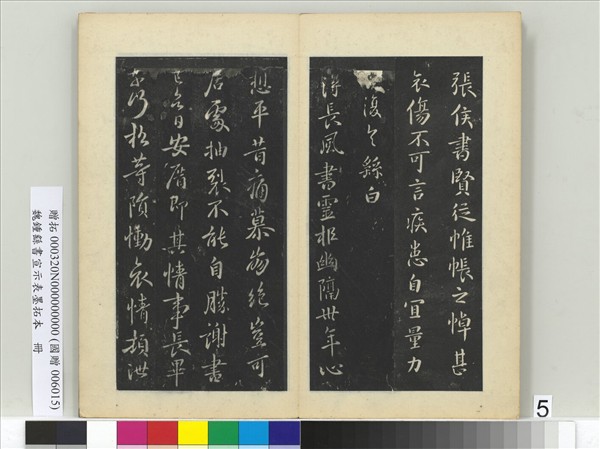 張侯書賢從帷帳之悼甚
哀傷不可言疾患自宜量力
復具繇白
得長風書靈柩幽隔卅年心
想平昔痛慕崩絕豈可
居處抽裂不能自勝謝書
日安厝即其情事長畢
奈何松等隕慟哀情頓泄
贈拓 000320N000000000 (國贈 006015)
魏鍾繇書宣示表墨拓本 冊
5